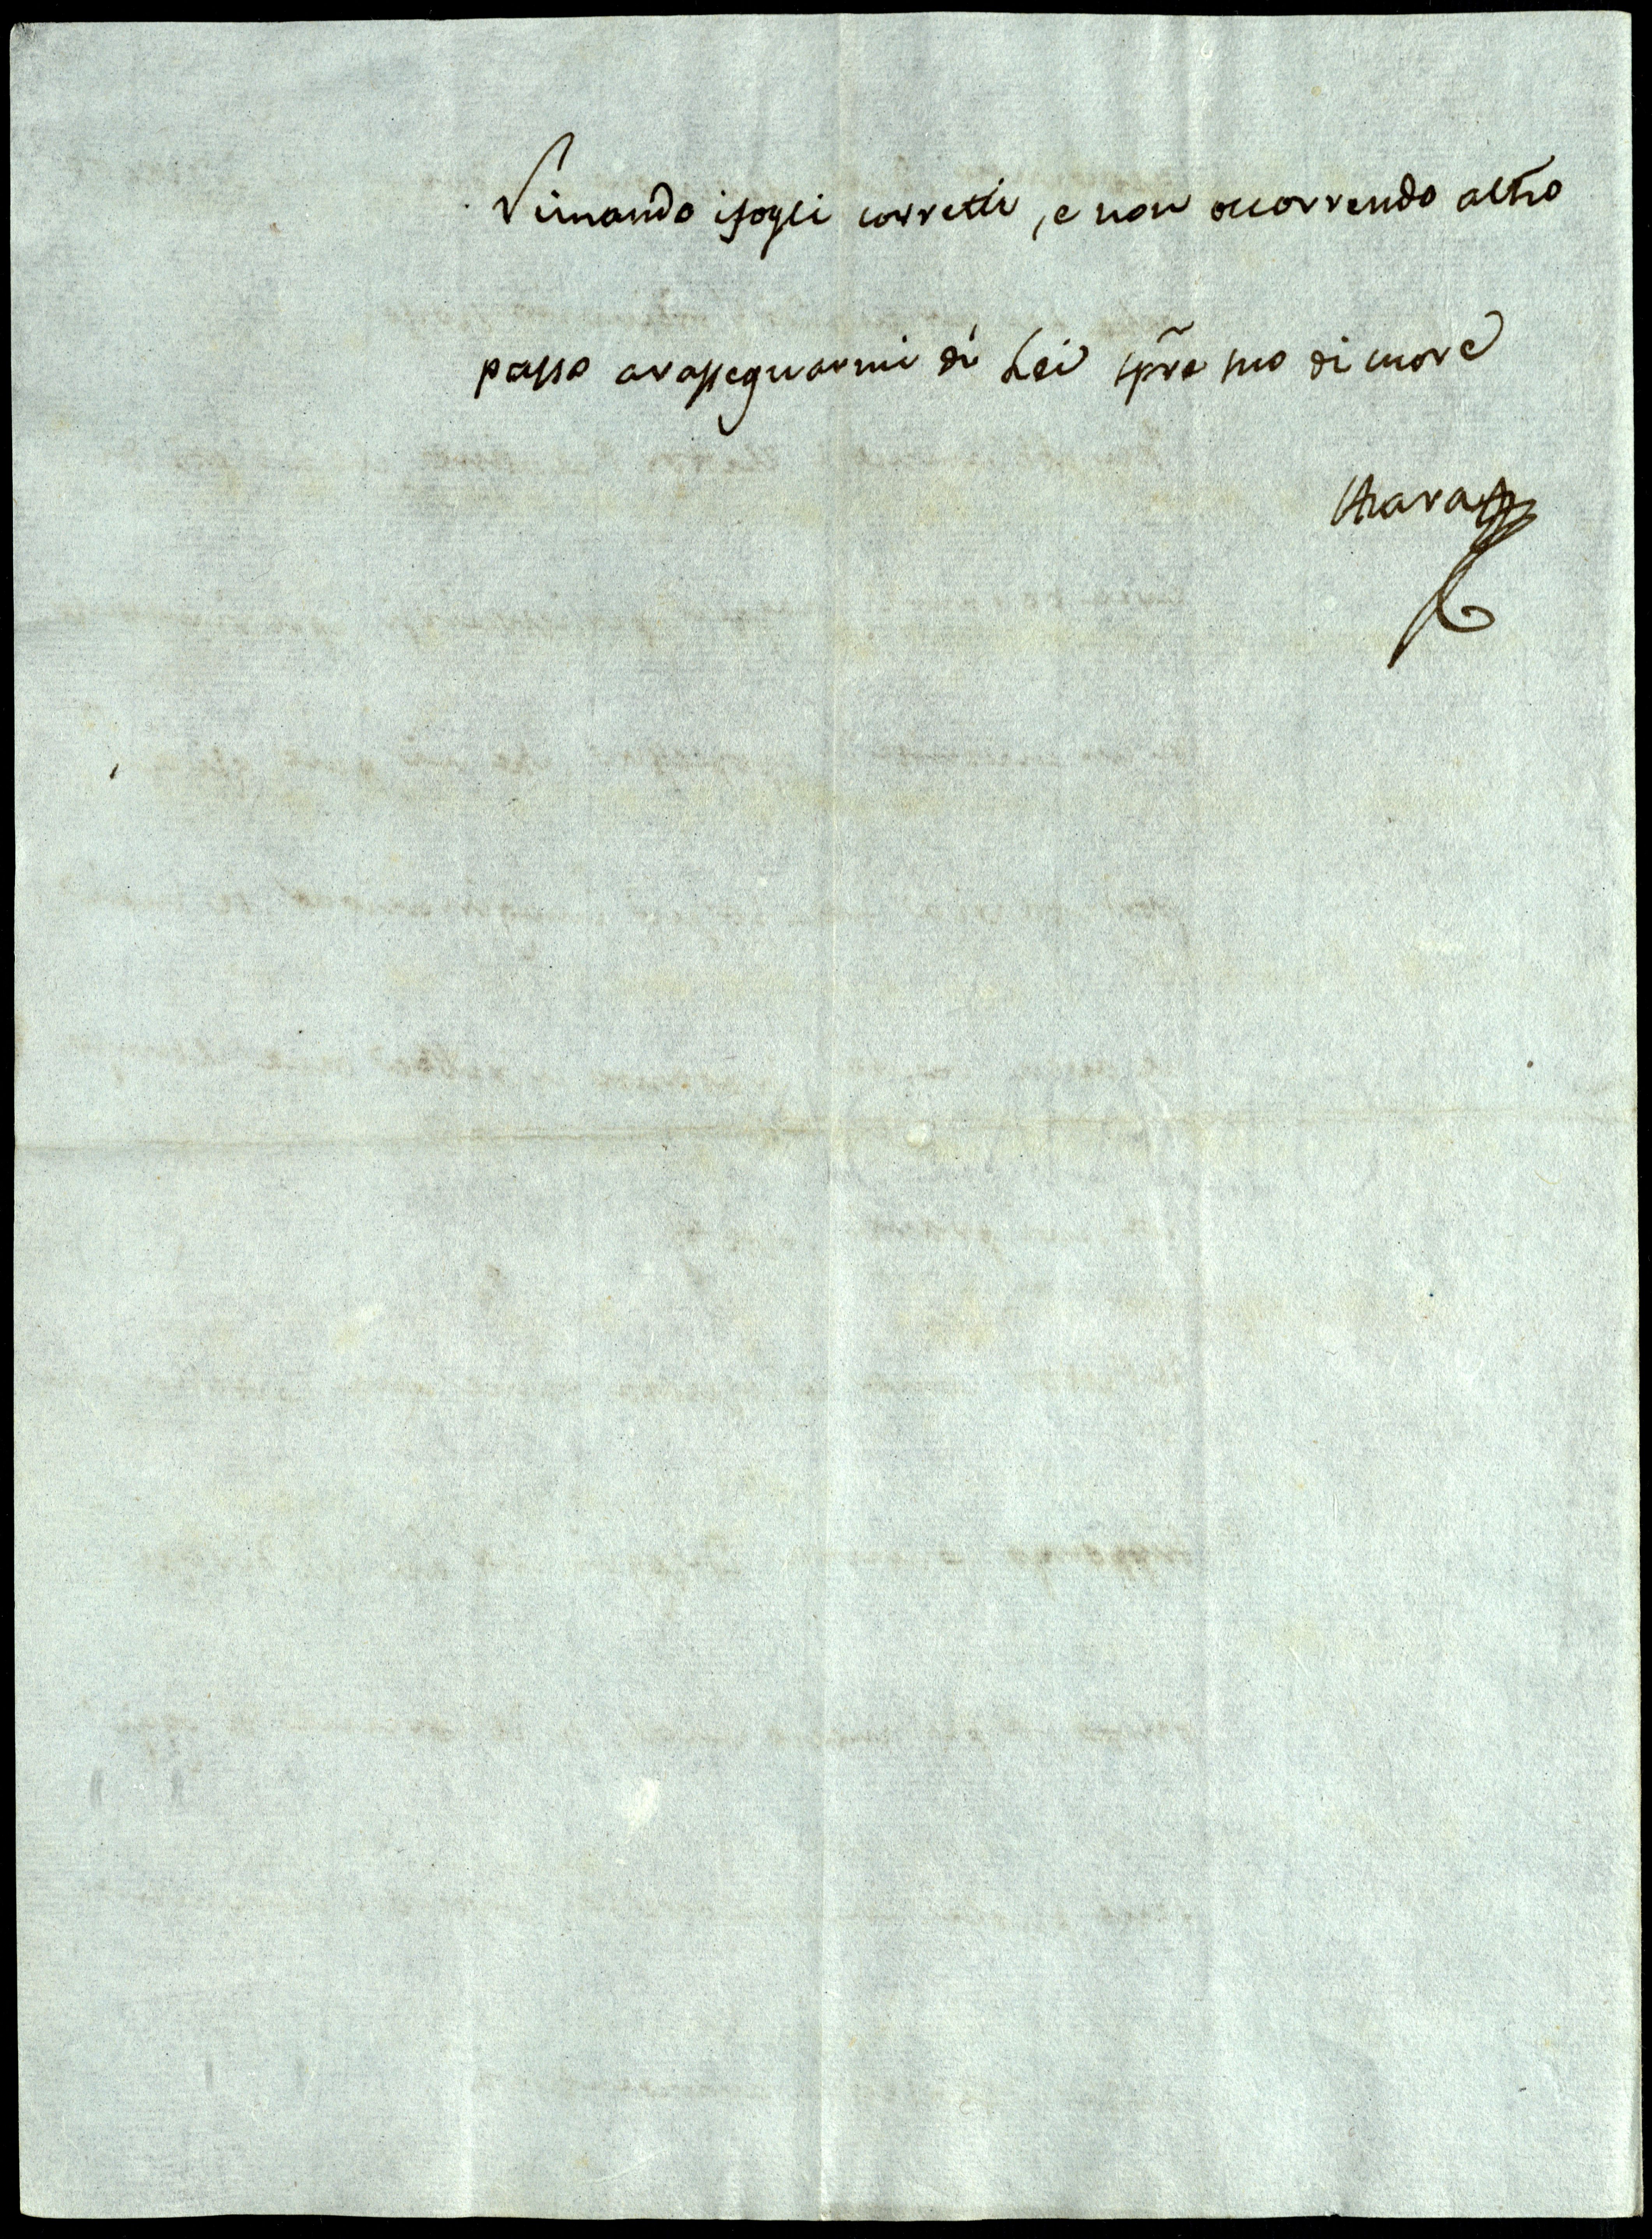 Rimando i fogli corretti, e non occorrendo altro
passo a rassegnarmi di Lei spre suo di cuore